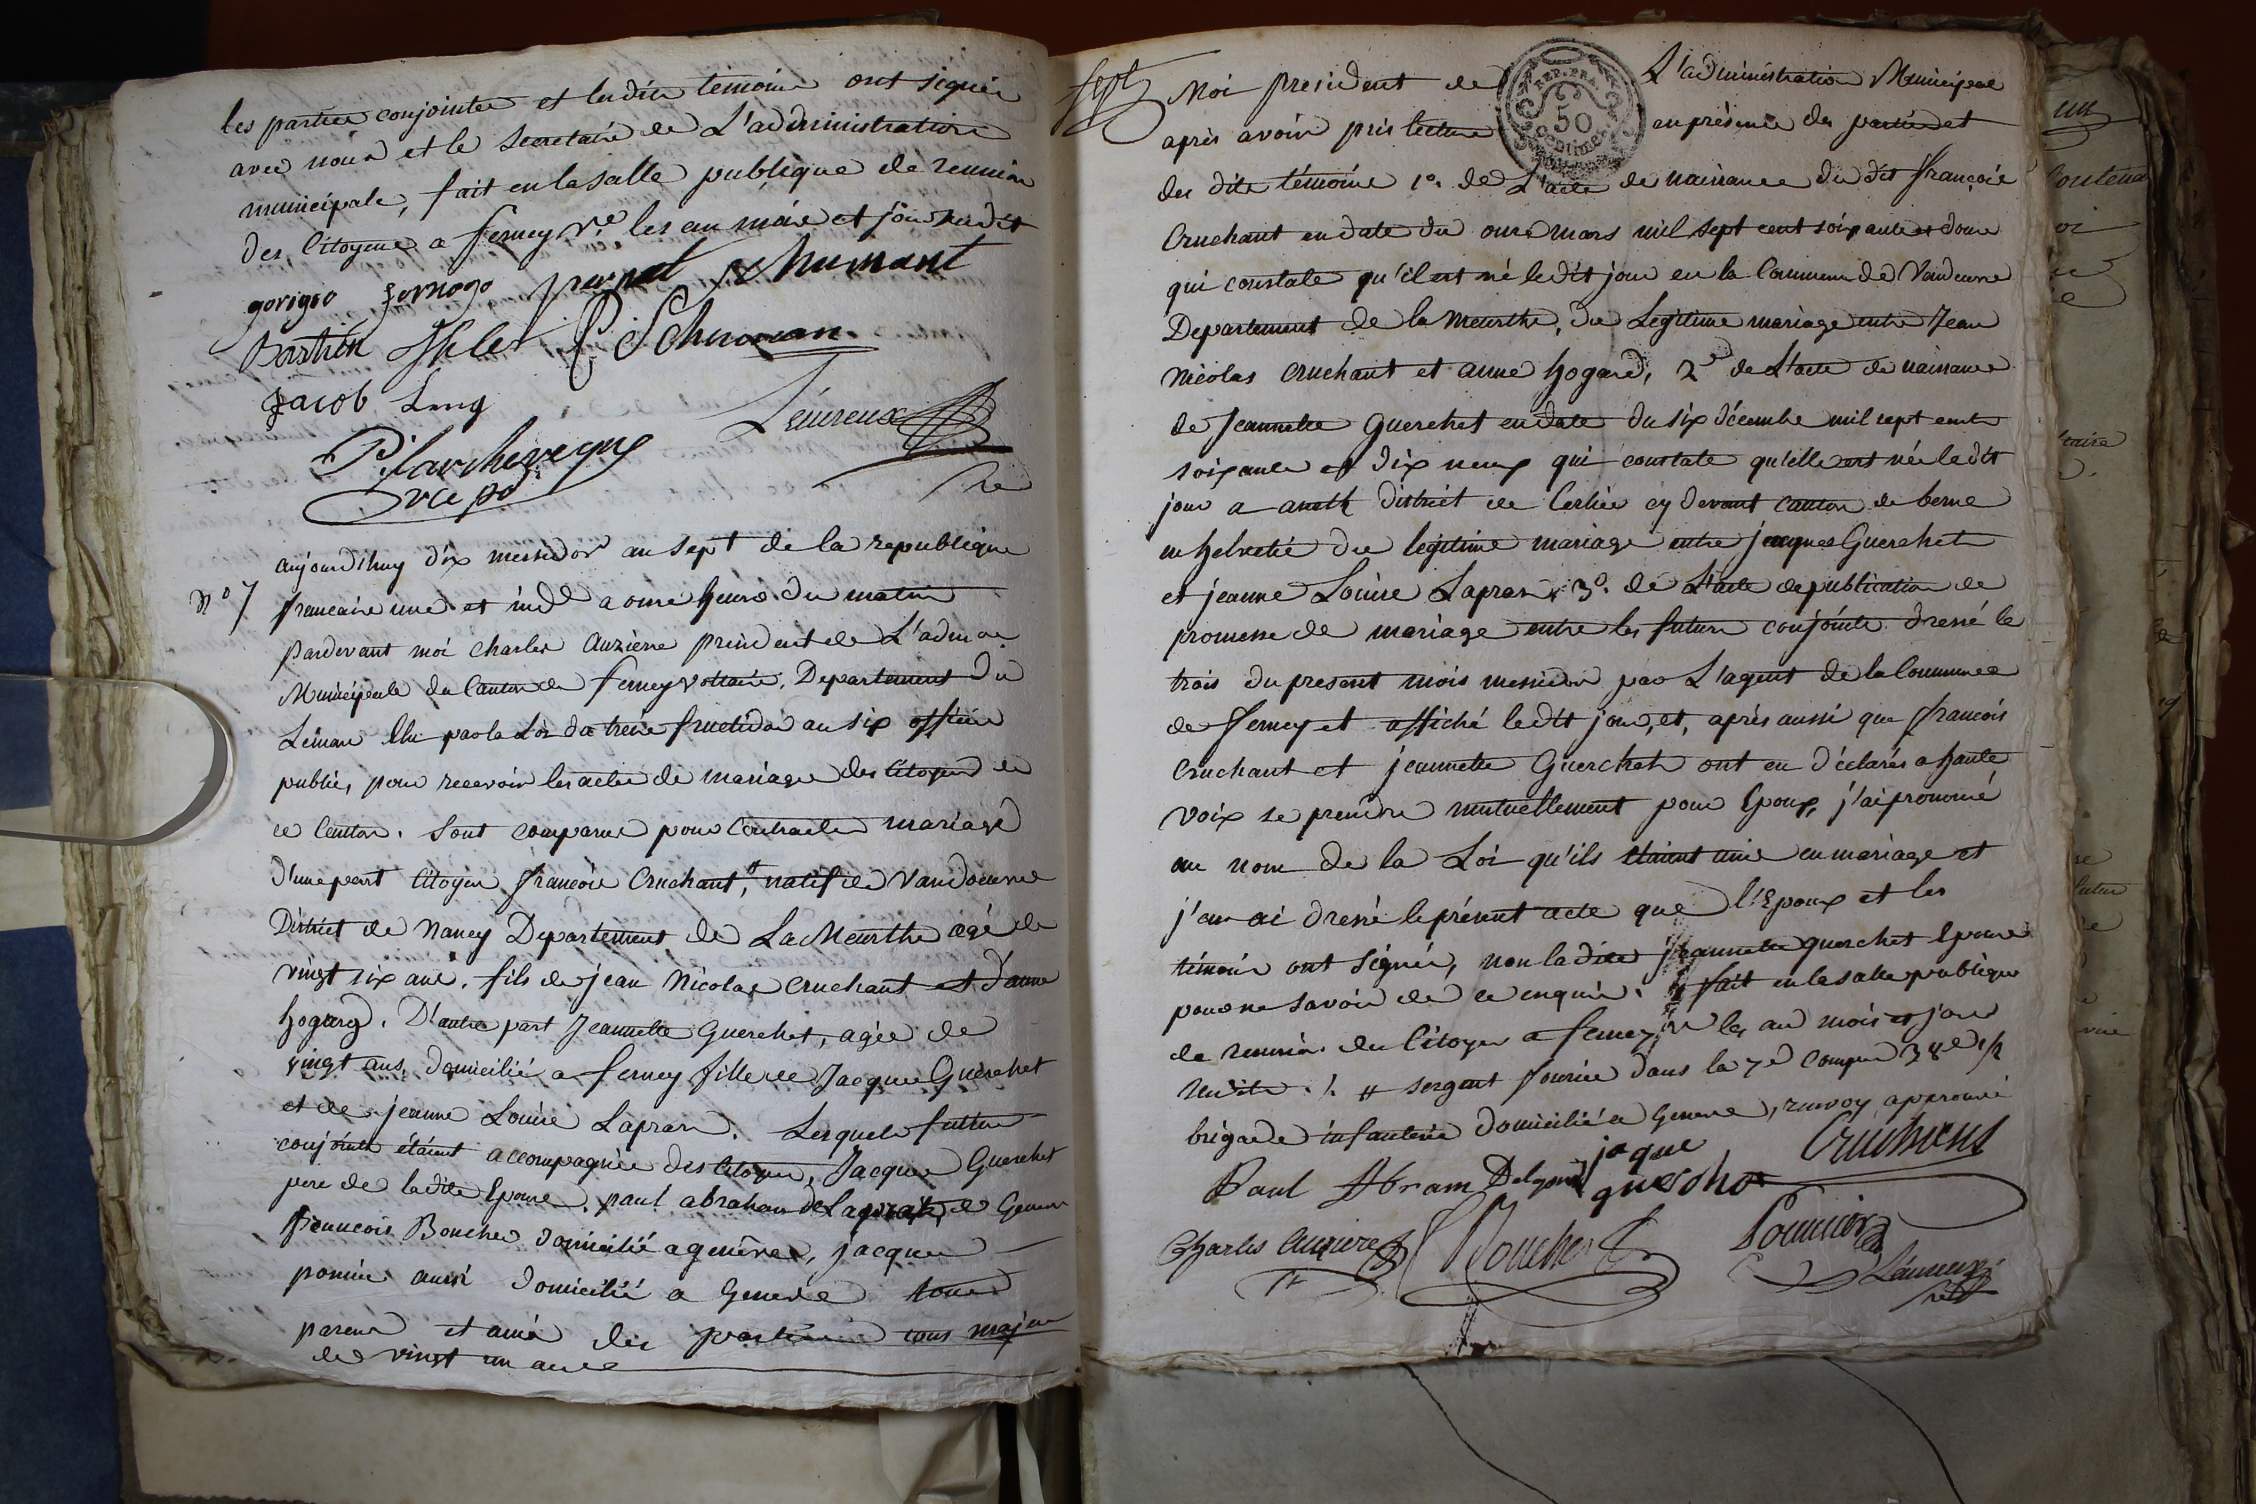 les parties conjointes et lesdits temoins ont signés
avec nous et le secretaire de L'administration
municipale, fait en la salle publique de reunion
des Citoyens a ferney Vre les an mois et jour susdit
schumant
Bastien P Schuman
Jacob Leng
P. larcheveque
vice pdt
Lémreux
aujourdihuy dix messidor an sept de la republique
No 7
francaise une et indle a onze heures du matin
Pardevant moi Charles Auziere president de L'admon
Municipale du Canton de ferney voltaire, Departement du
Leman Elu par la Loi du treize fructidor an six officier
public, pour recevoir les actes de mariage des Citoyens de
ce Canton. Sont comparus pour Contracter mariage
d'une part Citoyen francois Cruchant, # natif de Vandoeuvre
District de Nancy Departement de La Meurthe agé de
vingt six ans, fils de jean Nicolas Cruchant et d'anne
hogard. D'autre part Jeannette Guerchet, agée de
vingt ans, domicilié a ferney fille de Jacque Guerchet
et de jeanne Louise Laprasn. Lesquels futurs
conjoints étaient accompagnés des Citoyens, Jacques Guerchet
pere de la dite Epouse, paul abraham de Geneve
francois Boucher domicilié a genêve, jacques
pomier aussi domicilié a Genêve tous
parens et amis des parties tous majeurs
de vingt un ans
sept
REP. FRA.
50
centimes
Moi president de L'administration Municipale
après avoir pris lecture en présence des parties et
des dits témoins 1o. de L'acte de naissance du dit françois
Cruchant en date du onze mars mil sept cent soixante et douze
qui constate qu'il est né le dit jour en la Commune de Vandeuvre
Departement de la Meurthe, du Legitime mariage entre Jean
Nicolas Cruchant et anne hogard, 2o de L'acte de naissance
de Jeannette Guerchet en date du six décembre mil sept cents
soixante et dix neuf qui constate qu'elle est née le dit
jour a aneth district de Cerlier cy devant canton de berne
en helvetie du legitime mariage entre jacques Guerchet
et jeanne Louise Laprasn, 3o. de L'acte de publication de
promesse de mariage entre les futurs conjoints dressé le
trois du present mois messidor par L'agent de la Commune
de ferney et affiché le dit jour, et, après aussi que francois
Cruchant et jeannette Guerchet ont eu déclarés a haute
voix se prendre mutuellement pour Epoux, j'ai prononcé
au nom de la Loi qu'ils étaient unis en mariage et
j'en ai dressé le présent acte que l'Epoux et les
témoins ont signés, non la dite jeannette guerchet Epouse
pour ne savoir de ce enquise. fait en la salle publique
de reunion des Citoyens a ferney Vre les an mois et jour
susdits ./. # sergent fourier dans la 7e compie 38e 1/2
brigade infanterie domicilié a Geneve, renvoy approuvé
Cruchant
Paul Abram jaque
guerchet
Charles Auziere Boucher Poumier
Lémreux